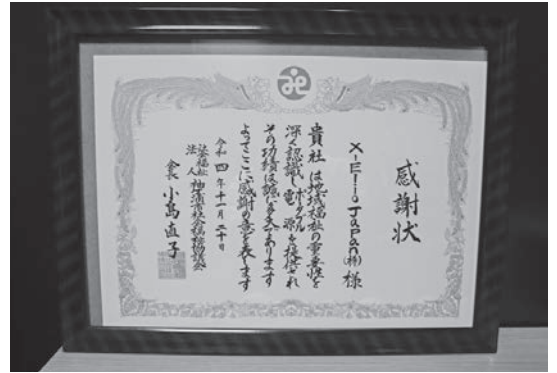 感謝状
X-Elio Japan(株) 様
貴社は地域福祉の重要性を
深く認識しポータブル電源を提供され
その功績は誠に多大であります
よってここに感謝の意を表します
令和四年十一月二十日
社会福祉法人 袖ケ浦市社会福祉協議会
会長 小島直子